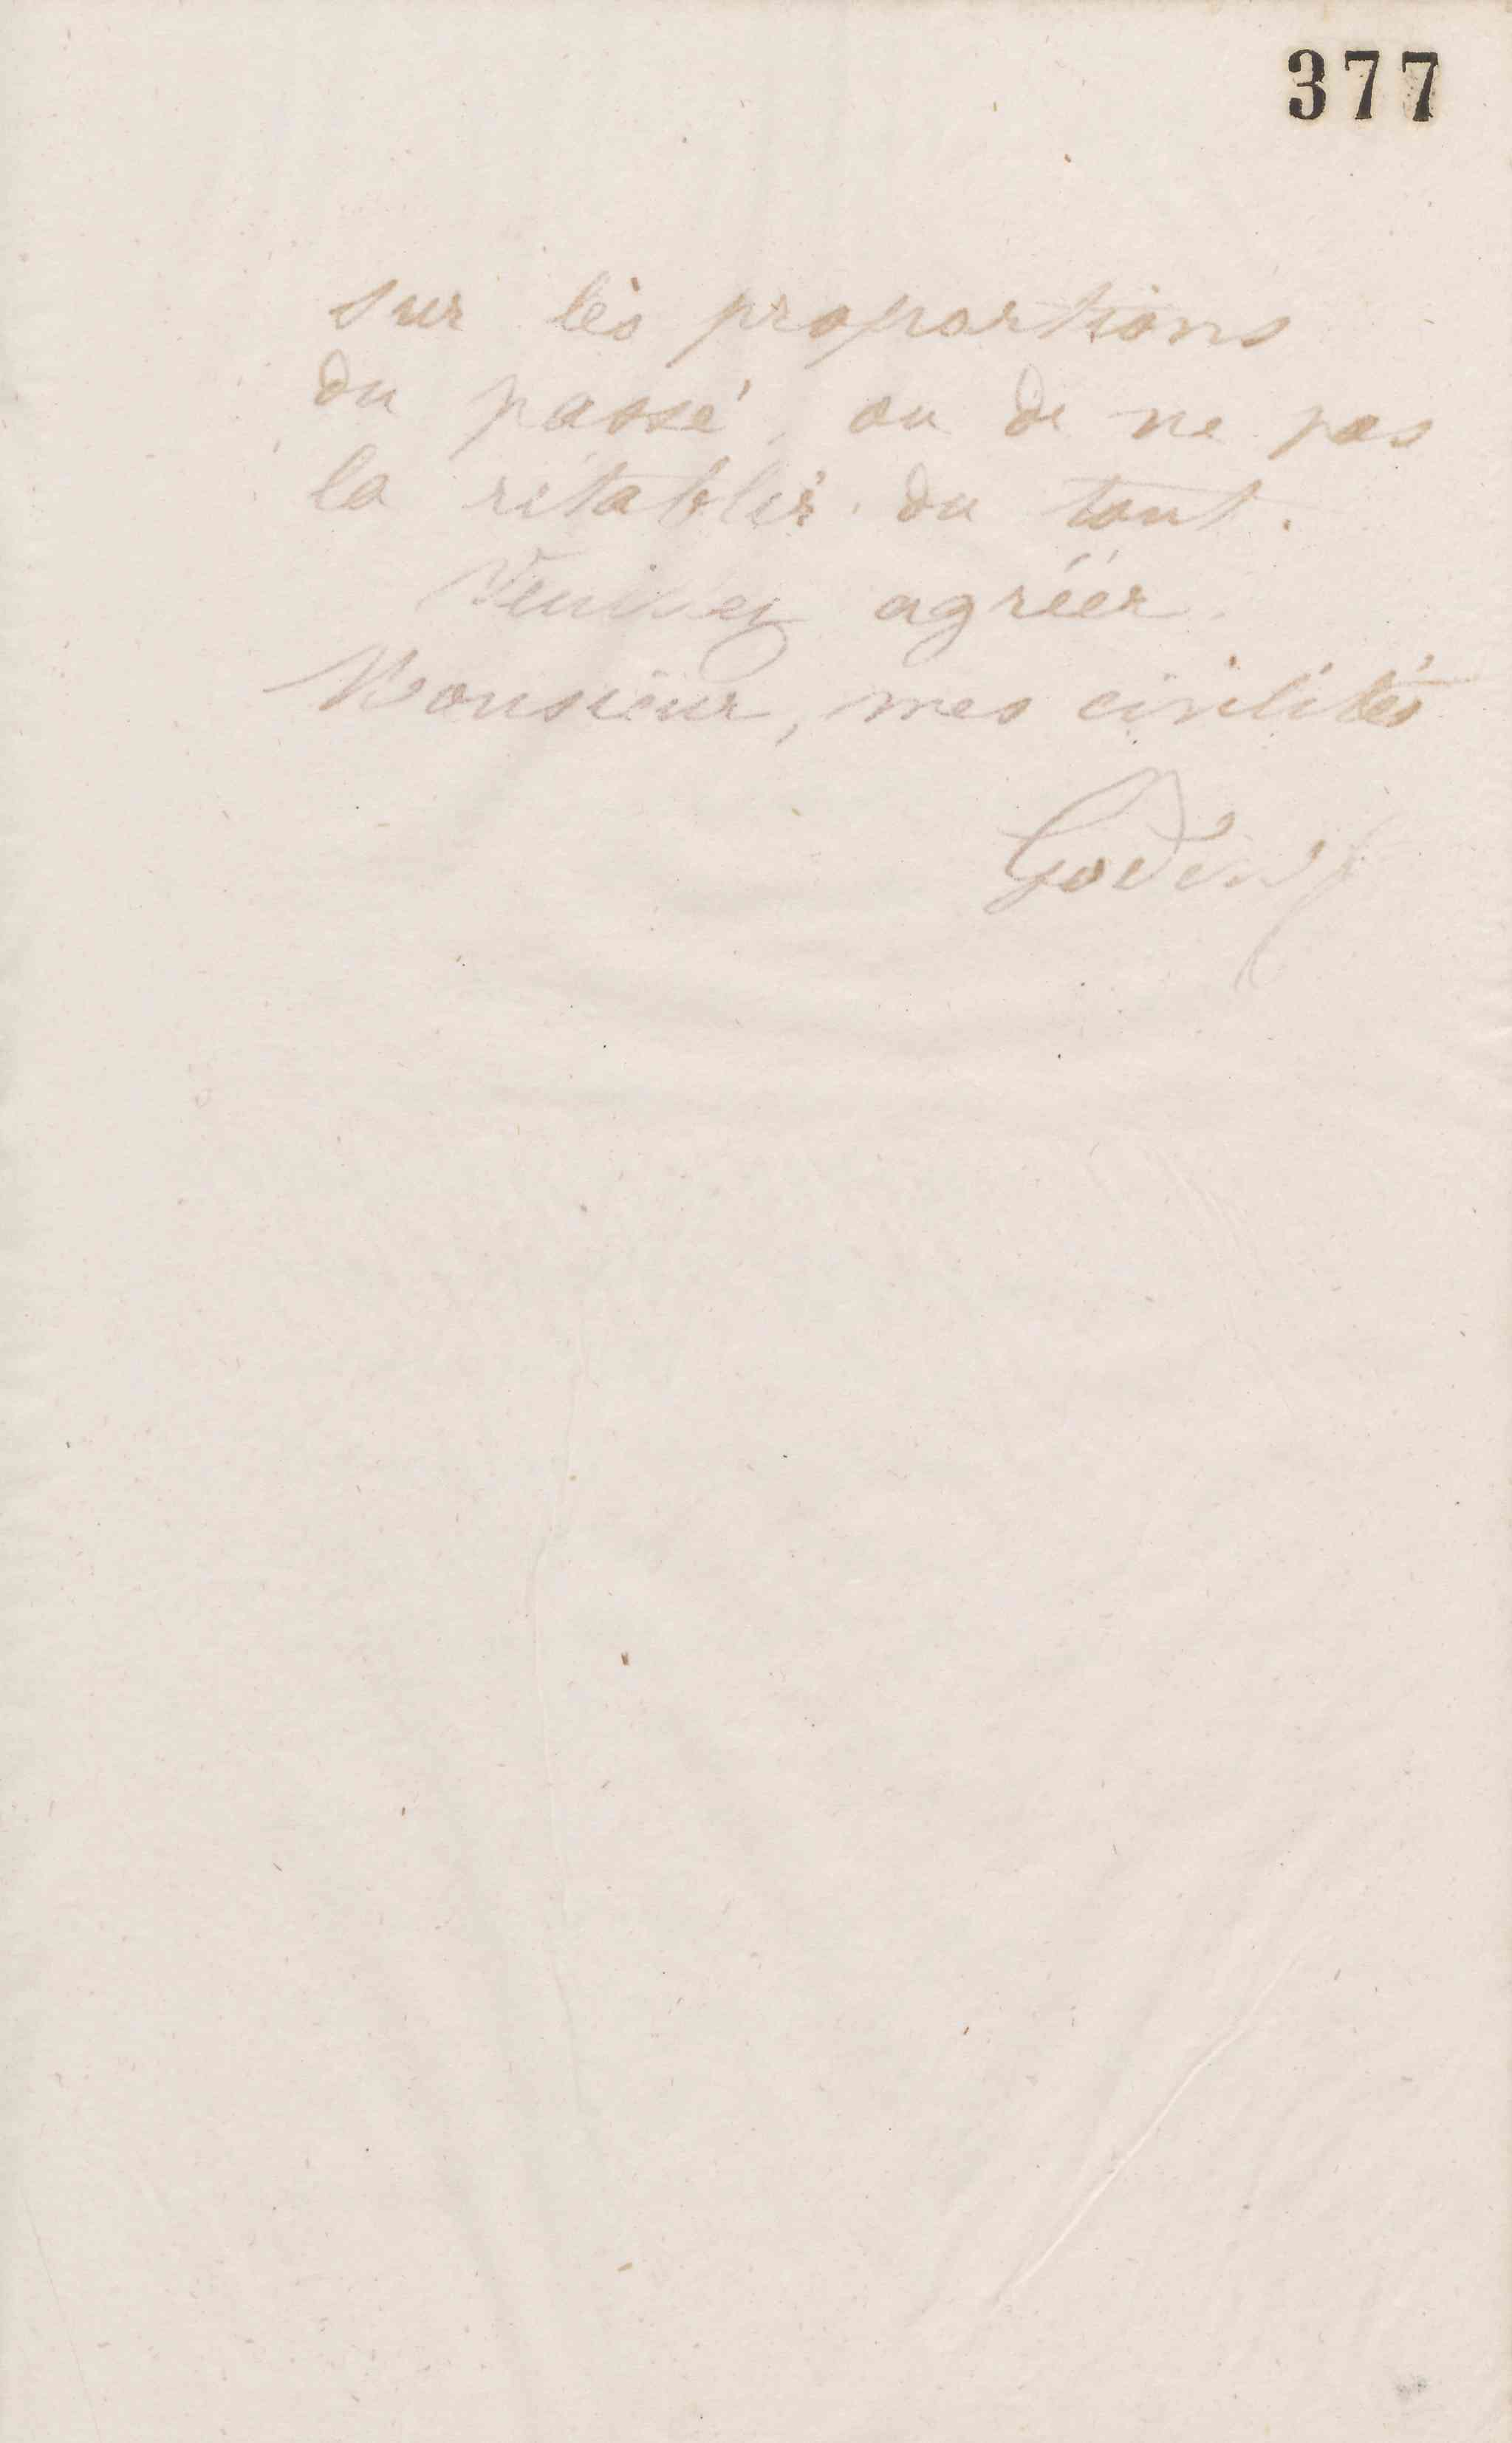 377
sur les proportions
du passé, ou de ne pas
la rétablir du tout.
Veuillez agréer
Monsieur, mes civilités
Godin